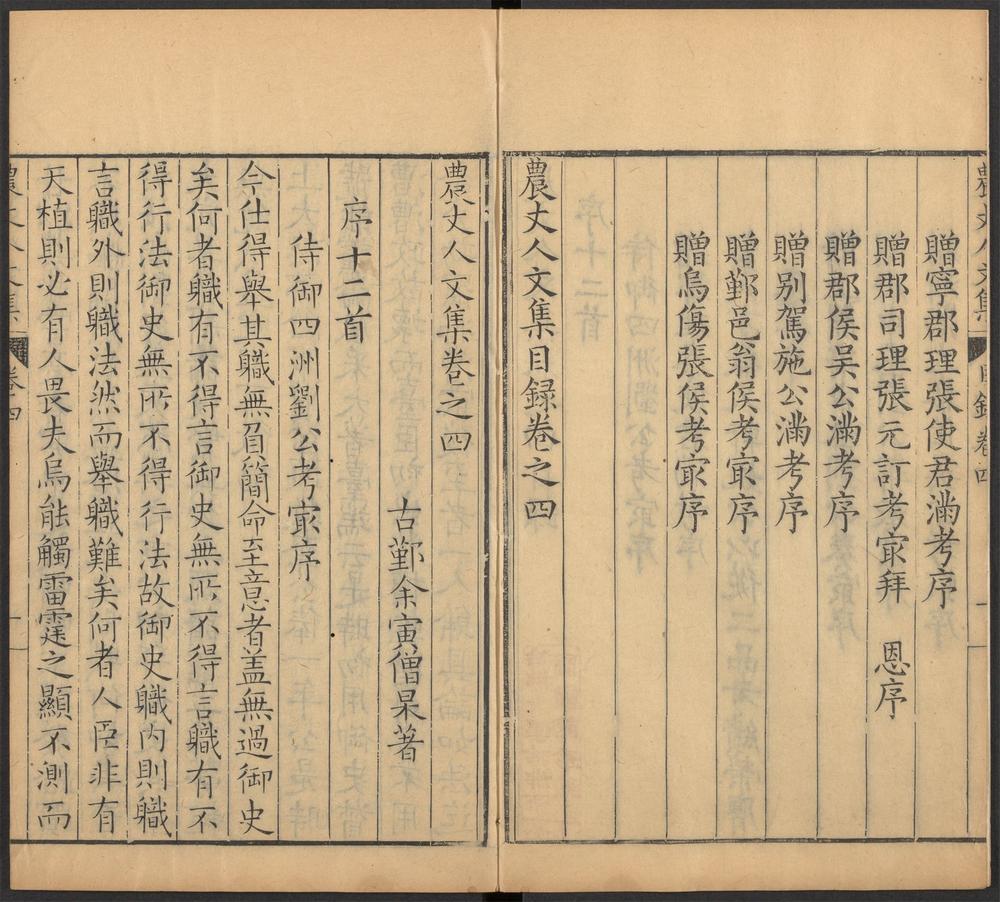 農丈人文集 目錄 卷四 一
贈寧郡理張使君滿考序
贈郡司理張元訂考㝡拜 恩序
贈郡侯吴公滿考序
贈别駕施公滿考序
贈鄞邑翁侯考㝡序
贈烏傷張侯考㝡序
農丈人文集目録卷之四
農丈人文集卷之四
古鄞余寅僧杲著
序十二首
侍御四洲劉公考㝡序
今仕得舉其職無負簡命至意者盖無過御史
矣何者職有不得言御史無所不得言職有不
得行法御史無所不得行法故御史職内則職
言職外則職法然而舉職難矣何者人臣非有
天植則必有人畏夫烏能觸雷霆之顯不測而
農丈人文集 卷四 一